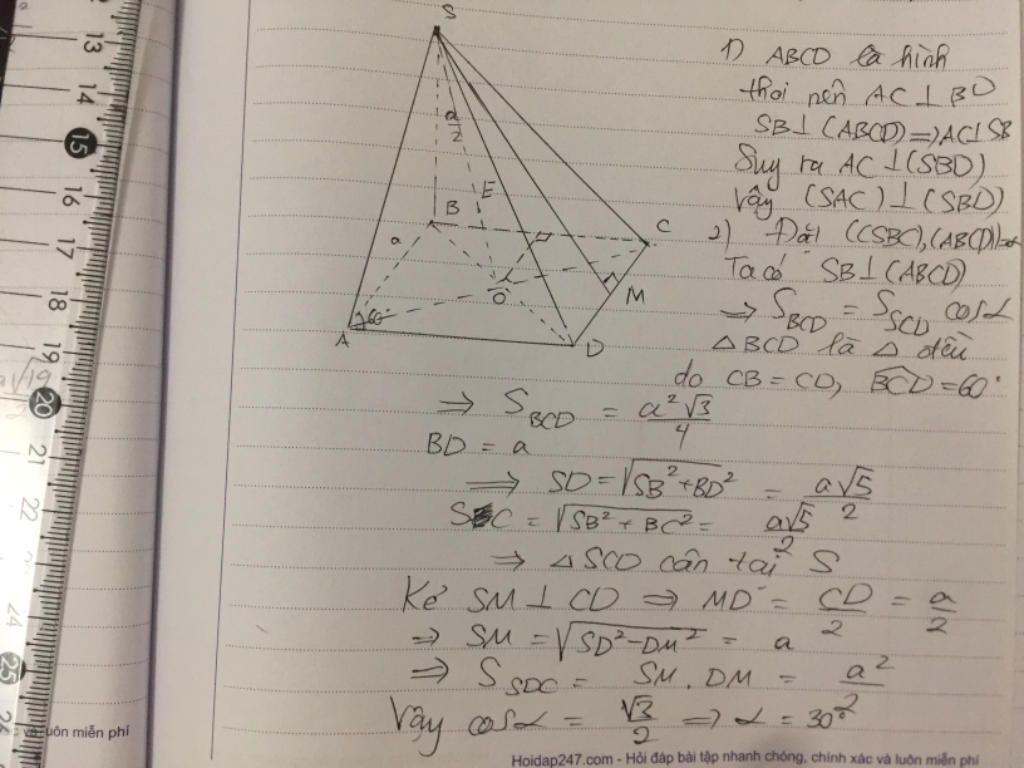 S
a/2
E
B
a
C
O
M
60°
A
D
1) ABCD là hình
thoi nên AC ⊥ BD
SB ⊥ (ABCD) ⇒ AC ⊥ SB
Suy ra AC ⊥ (SBD)
Vậy (SAC) ⊥ (SBD)
2) Đặt ((SBC),(ABCD))=α
Ta có SB ⊥ (ABCD)
⇒ S_BCD = S_SCD cosα
△BCD là △ đều
do CB = CD, BCD = 60°
⇒ S_BCD = a²√3/4
BD = a
⇒ SD = √(SB² + BD²) = a√5/2
SC = √(SB² + BC²) = a√5/2
⇒ △SCD cân tại S
Kẻ SM ⊥ CD ⇒ MD = CD/2 = a/2
⇒ SM = √(SD² - DM²) = a
⇒ S_SDC = SM . DM = a²/2
Vậy cosα = √3/2 ⇒ α = 30°
13
14
15
16
17
18
19
20
21
22
24
25
√19
và luôn miễn phí
Hoidap247.com - Hỏi đáp bài tập nhanh chóng, chính xác và luôn miễn phí